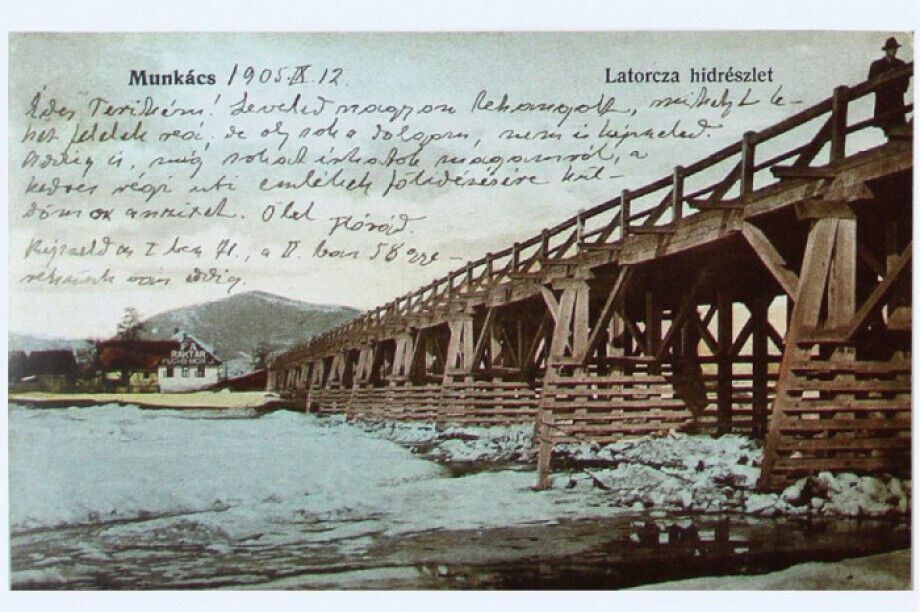 Munkács 1905 IX 12.
Latorcza hidrészlet
Édes Terikém! Leveled nagyon lehangolt, mihelyt le-
het felelek reá, de oly sok a dolgom, nem is képzeled.
Addig is, míg sokat írhatok magamról, a
kedves régi uti emlékek felidézésére kül-
döm ezt. Ölel
Árpád.
Képzeld az I ben 71, a II. ban 58 gye-
rekünk van eddig.
RAKTÁR
FUCHS MÓR